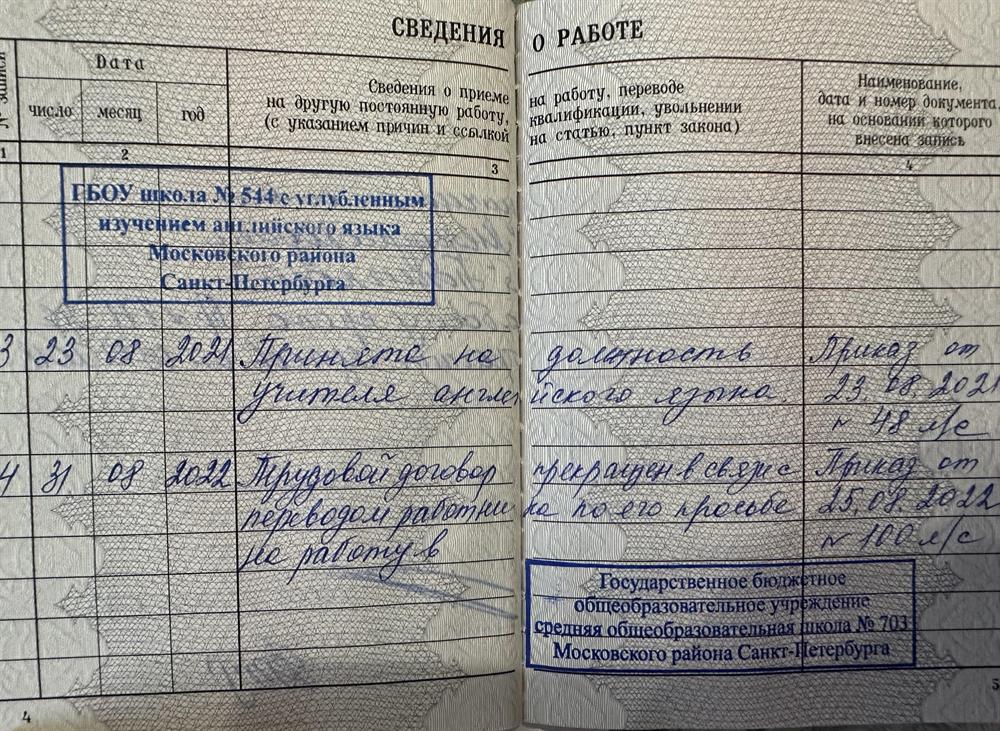 СВЕДЕНИЯ О РАБОТЕ
№ записи
Дата
число месяц год
Сведения о приеме на работу, переводе
на другую постоянную работу, квалификации, увольнении
(с указанием причин и ссылкой на статью, пункт закона)
Наименование,
дата и номер документа,
на основании которого
внесена запись
1 2 3 4
ГБОУ школа № 544 с углубленным
изучением английского языка
Московского района
Санкт-Петербурга
3 23 08 2021 Принята на должность Приказ от
учителя английского языка. 23.08.2021
№ 48 л/с
4 31 08 2022 Трудовой договор прекращен в связи с Приказ от
переводом работника по его просьбе 25.08.2022
на работу в № 100 л/с
Государственное бюджетное
общеобразовательное учреждение
средняя общеобразовательная школа № 703
Московского района Санкт-Петербурга
4 5